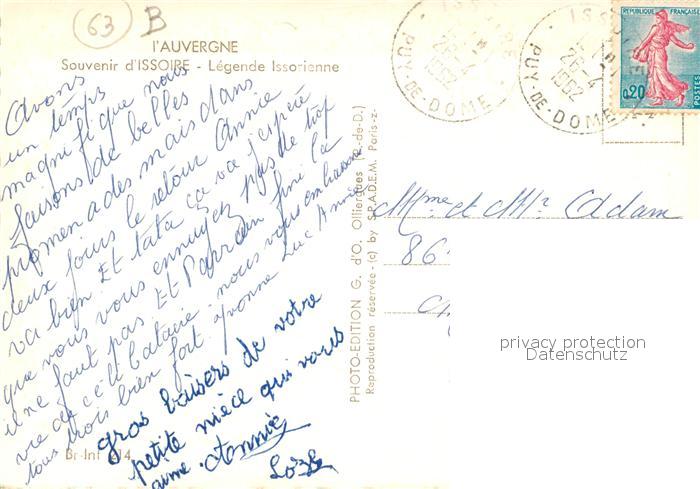 63 B
l'AUVERGNE
Souvenir d'ISSOIRE - Légende Issorienne
avons
un temps
magnifique nous
faisons de belles
promenades mais dans
deux jours le retour Annie
va bien Et tata ça va j'espère
que vous vous ennuyez pas de trop
il ne faut pas Et Parrain fini la
vie de célibataire. nous vous embrassons
tous trois bien fort. Yvonne Luc Annie
gros baisers de votre
petite nièce qui vous
aime Annie
Br-Inf 214
PHOTO-EDITION G. d'O. Ollierques (P.-de-D.)
Reproduction réservée - (c) by S.P.A.D.E.M. Paris
ISSOIRE
PUY-DE-DOME
1962
ISSOIRE
PUY-DE-DOME
1962
REPUBLIQUE FRANÇAISE
0,20
POSTES
Mme et Mr Adam
86
privacy protection
Datenschutz